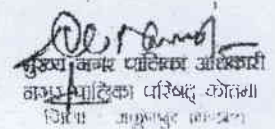 मुख्य नगर पालिका अधिकारी
नगर पालिका परिषद् कोतमा
जिला अनूपपुर